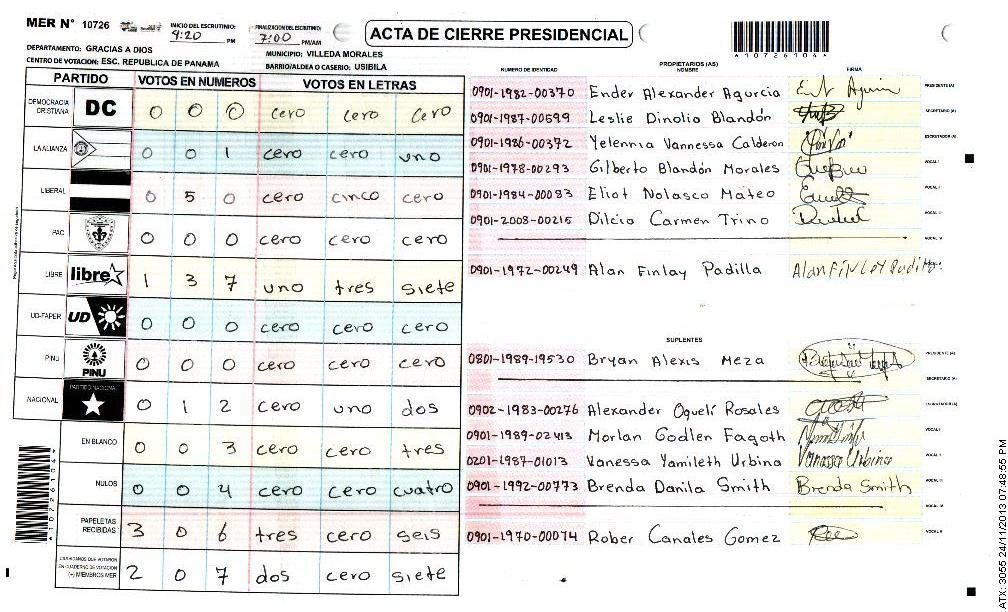 MER Nº 10726
INICIO DEL ESCRUTINIO: 4:20 PM
FINALIZACION DEL ESCRUTINIO: 7:00 PM/AM
ACTA DE CIERRE PRESIDENCIAL
*107261041*
DEPARTAMENTO: GRACIAS A DIOS
MUNICIPIO: VILLEDA MORALES
CENTRO DE VOTACION: ESC. REPUBLICA DE PANAMA
BARRIO/ALDEA O CASERIO: USIBILA
PARTIDO VOTOS EN NUMEROS VOTOS EN LETRAS
DEMOCRACIA CRISTIANA DC 0 0 0 cero cero cero
LA ALIANZA 0 0 1 cero cero uno
LIBERAL 0 5 0 cero cinco cero
PAC 0 0 0 cero cero cero
LIBRE libre 1 3 7 uno tres siete
UD-FAPER UD 0 0 0 cero cero cero
PINU PINU 0 0 0 cero cero cero
NACIONAL PARTIDO NACIONAL 0 1 2 cero uno dos
EN BLANCO 0 0 3 cero cero tres
NULOS 0 0 4 cero cero cuatro
PAPELETAS RECIBIDAS 3 0 6 tres cero seis
CIUDADANOS QUE VOTARON EN CUADERNO DE VOTACION (+) MIEMBROS MER 2 0 7 dos cero siete
PROPIETARIOS (AS)
NUMERO DE IDENTIDAD NOMBRE FIRMA
0901-1982-00370 Ender Alexander Agurcia PRESIDENTE (A)
0901-1987-00599 Leslie Dinolio Blandón SECRETARIO (A)
0901-1986-00372 Yelennia Vannessa Calderon ESCRUTADOR (A)
0901-1978-00293 Gilberto Blandón Morales VOCAL I
0901-1984-00083 Eliot Nolasco Mateo VOCAL II
0901-2008-00215 Dilcia Carmen Trino VOCAL III
VOCAL IV
0901-1972-00249 Alan Finlay Padilla
SUPLENTES
0801-1989-19530 Bryan Alexis Meza PRESIDENTE (A)
SECRETARIO (A)
0902-1983-00276 Alexander Oquelí Rosales ESCRUTADOR (A)
0901-1989-02413 Morlan Godlen Fagoth VOCAL I
0201-1987-01013 Vanessa Yamileth Urbina Vanessa Urbina VOCAL II
0901-1992-00773 Brenda Danila Smith Brenda Smith VOCAL III
VOCAL IV
0901-1970-00074 Rober Canales Gomez VOCAL V
*107261041*
ATX: 3055 24/11/2013 07:48:55 PM